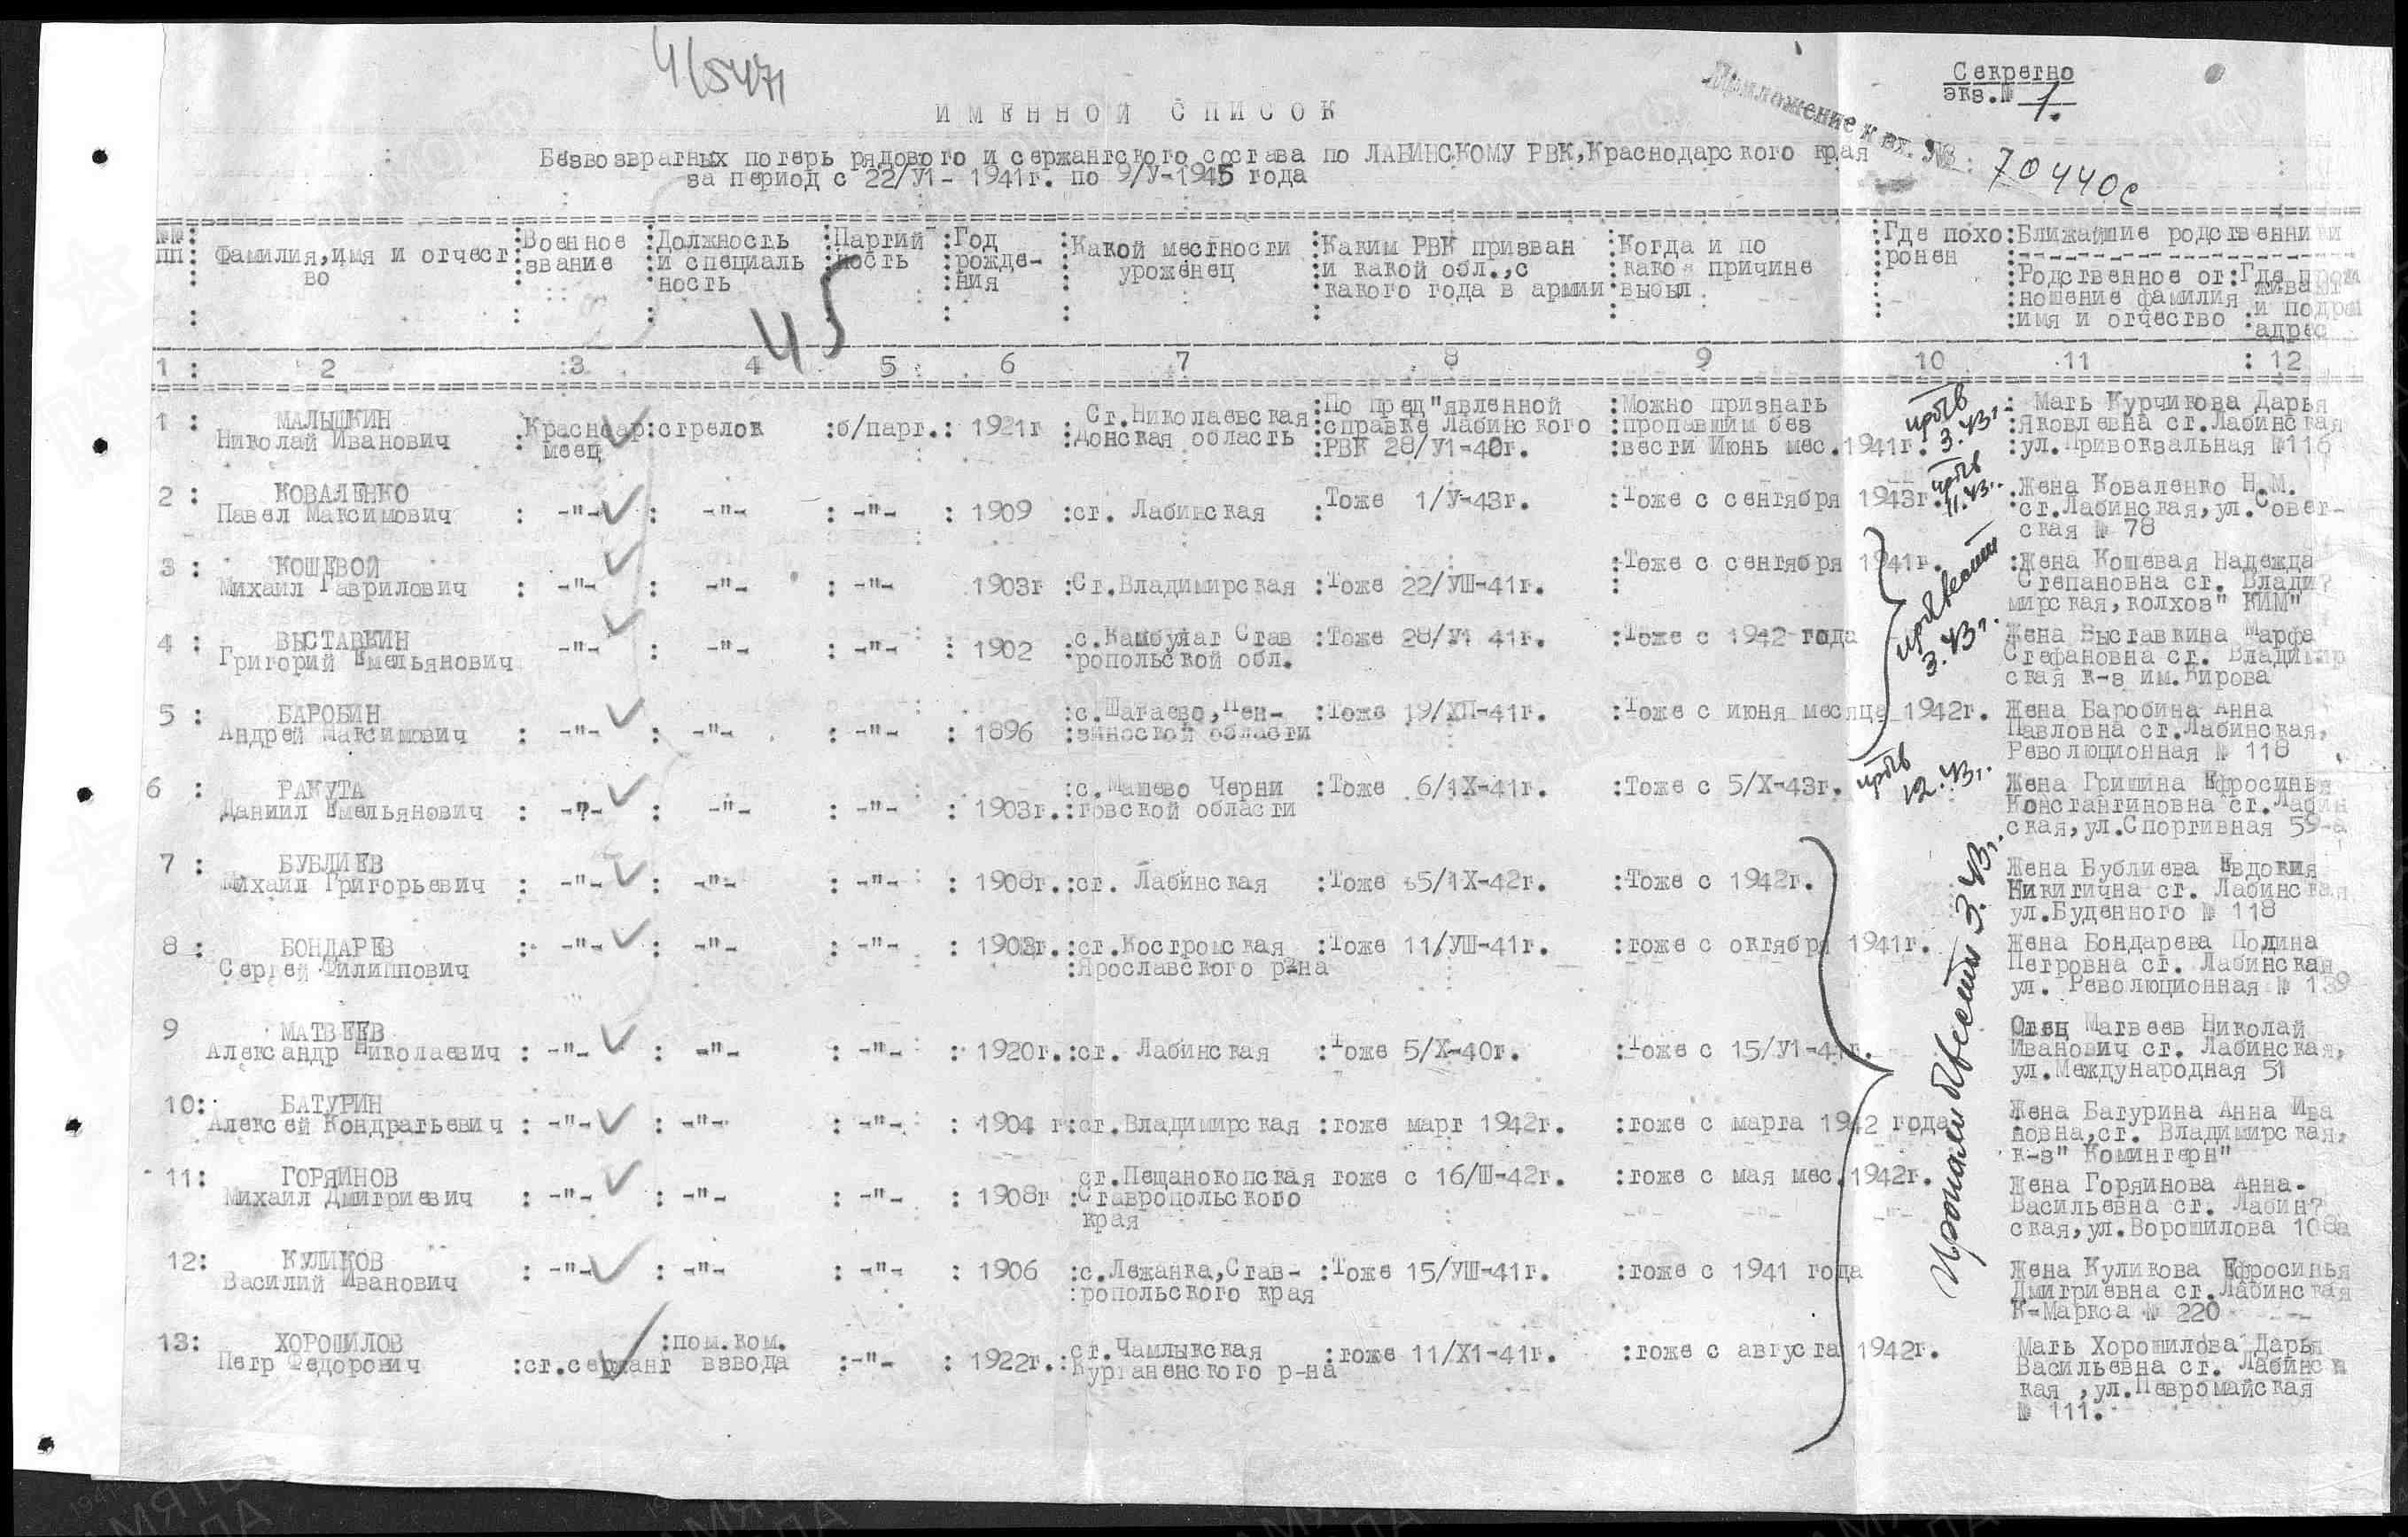 4/5471
Секретно
экз.№ 1.
ИМЕННОЙ СПИСОК
Приложение к вх. № 70440с
Безвозвратных потерь рядового и сержантского состава по ЛАБИНСКОМУ РВК,Краснодарского края
за период с 22/У1- 1941г. по 9/У-1945 года
№№ пп : Фамилия,имя и отчест во : Военное звание : Должность и специаль ность : Партий- ность : Год рожде- ния : Какой местности уроженец : Каким РВК призван и какой обл.,с какого года в армии : Когда и по какой причине выбыл : Где похо ронен : Ближайшие родственники
Родственное от ношение фамилия имя и отчество : Где прожи живают и подроб адрес
45
1 : 2 : 3 4 5 6 7 8 9 10 11 : 12
1 : МАЛЫШКИН :По пред"явленной :Можно признать : Мать Курчикова Дарья
Николай Иванович : Красноар :стрелок :б/парт.: 1921г : Ст.Николаевская :справке Лабинского :пропавшим без :Яковлевна ст.Лабинская
меец :Донская область :РВК 28/У1-40г. :вести Июнь мес.1941г. :ул.Привокзальная №116
проп/в 3.43г.
2 : КОВАЛЕНКО :Жена Коваленко Н.М.
Павел Максимович : -"- : -"- : -"- : 1909 :ст. Лабинская : Тоже 1/У-43г. :Тоже с сентября 1943г. ст.Лабинская,ул.Совет-
ская № 78
проп/в 11.43г.
3 : КОШЕВОЙ :Тоже с сентября 1941г. :Жена Кошевая Надежда
Михаил Гаврилович : -"- : -"- : -"- 1903г :Ст.Владимирская :Тоже 22/УШ-41г. : Степановна ст. Влади?
мирская,колхоз" КИМ"
4 : ВЫСТАВКИН -"- : -"- : -"- : 1902 :с.Камбулат Став :Тоже 28/У1 41г. :Тоже с 1942 года Жена Выставкина Марфа
Григорий Емельянович :ропольской обл. Стефановна ст. Владимир
ская к-з им.Кирова
проп/вести 3.43г.
5 : БАРОБИН :с.Шагаево,Пен- :Тоже 19/ХП-41г. :Тоже с июня месяца 1942г. Жена Баробина Анна
Андрей Максимович : -"- : -"- : -"- : 1896 :зиноской области Павловна ст.Лабинская,
Революционная № 118
6 : РАКУТА :с.Машево Черни :Тоже 6/1Х-41г. :Тоже с 5/Х-43г. Жена Гришина Ефросинья
Даниил Емельянович : -?- : -"- : -"- : 1903г.:говской области Константиновна ст.Лабин
ская,ул.Спортивная 59-а
проп/в 12.43г.
7 : БУБЛИЕВ Жена Бублиева Евдокия
Михаил Григорьевич : -"- : -"- : -"- : 1908г.:ст. Лабинская :Тоже 5/1Х-42г. :Тоже с 1942г. Никитична ст. Лабинская
ул.Буденного № 118
8 : БОНДАРЕВ : -"- : -"- : -"- : 1903г.:ст.Костромская :Тоже 11/УШ-41г. :тоже с октября 1941г. Жена Бондарева Полина
Сергей Филиппович :Ярославского р-на Петровна ст. Лабинская
ул. Революционная № 139
9 МАТВЕЕВ Отец Матвеев Николай
Александр Николаевич : -"- : -"- : -"- : 1920г.:ст. Лабинская :Тоже 5/Х-40г. :Тоже с 15/У1-41г. Иванович ст. Лабинская,
ул.Международная 51
10: БАТУРИН Жена Батурина Анна Ива
Алексей Кондратьевич : -"- : -"- : -"- : 1904 г:ст.Владимирская :тоже март 1942г. :тоже с марта 1942 года новна,ст. Владимирская,
к-з" Коминтерн"
11: ГОРЯИНОВ ст.Пещанокопская тоже с 16/Ш-42г. :тоже с мая мес.1942г. Жена Горяинова Анна-
Михаил Дмитриевич : -"- : -"- : -"- : 1908г :Ставропольского Васильевна ст. Лабин?
края ская,ул.Ворошилова 108а
12: КУЛИКОВ : -"- : -"- : -"- : 1906 :с.Лежанка,Став- :Тоже 15/УШ-41г. :тоже с 1941 года Жена Куликова Ефросинья
Василий Иванович :ропольского края Дмитриевна ст.Лабинская
К-Маркса № 220
13: ХОРОШИЛОВ :пом.ком. ст.Чамлыкская :тоже 11/Х1-41г. :тоже с августа 1942г. Мать Хорошилова Дарья
Петр Федорович :ст.сержант взвода :-"- : 1922г.:Курганенского р-на Васильевна ст. Лабинск
кая ,ул.Певромайская
№ 111.
Пропали б/вести 3.43г.